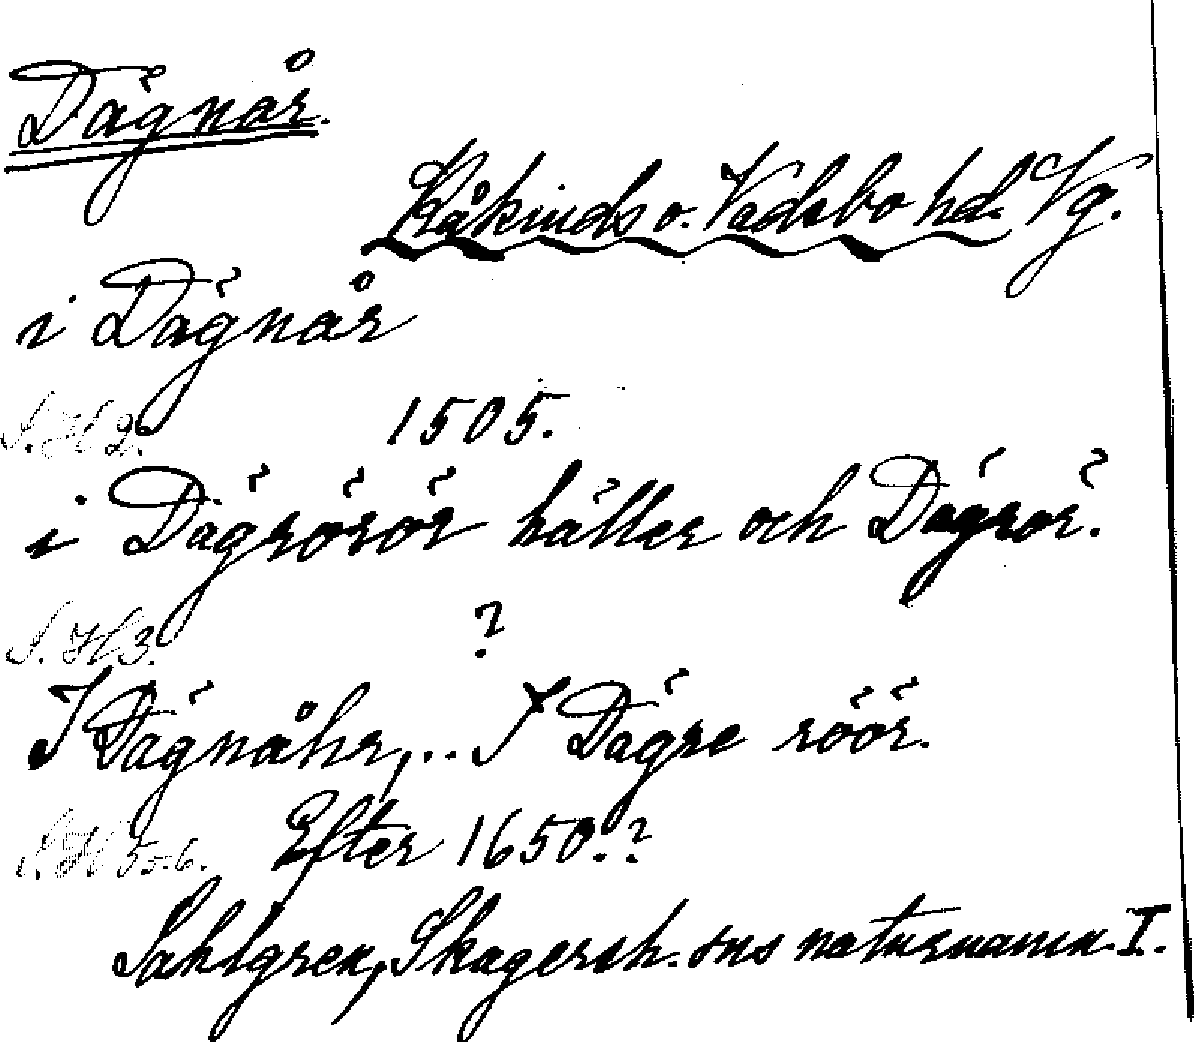 Dägnår.
Kåkinds o. Vadsbo hd. Vg.
i Dägnår
S.H 2. 1505.
i Dägrörör häller och Dägrör.
S.H 3. ?
I Dägnåhr,.. I Dägre röör.
S.H 5 o. 6. Efter 1650.?
Sahlgren, Skagersh. sns naturnamn I.